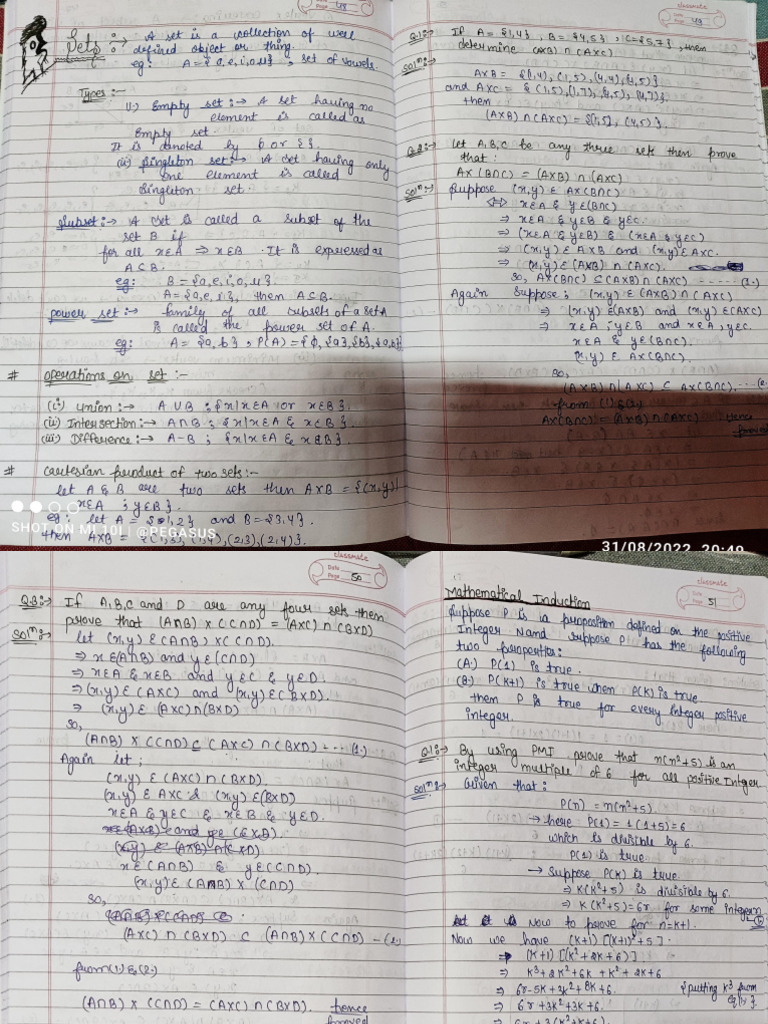 classmate
Page 48
Sets :→ A set is a collection of well
defined object or thing.
eg: A={a,e,i,o,u} , set of vowels.
Types :—
(i) Empty set :→ A set having no
element is called as
Empty set.
It is denoted by ϕ or { }.
(ii) Singleton set :→ A set having only
one element is called
Singleton set.
Subset :→ A set is called a subset of the
set B if
for all x∈A ⇒ x∈B . It is expressed as
A⊂B.
eg: B={a,e,i,o,u}
A={a,e,i}, then A⊂B.
power set :→ family of all subsets of a set A
is called the power set of A.
eg: A= {a,b} , P(A)={ϕ,{a},{b},{a,b}
# operations on set :—
(i) Union :→ A∪B ; {x|x∈A or x∈B}.
(ii) Intersection :→ A∩B ; {x|x∈A & x∈B}.
(iii) Difference :→ A−B ; {x|x∈A & x∉B}.
# Cartesian product of two sets :—
let A & B are two sets then A×B = {(x,y)|
x∈A ; y∈B}.
eg: let A = {1,2} and B={3,4}.
then A×B = {(1,3),(1,4),(2,3),(2,4)}.
SHOT ON MI 10i | @PEGASUS
classmate
Page 49
Q.1:→ If A={1,4} , B={4,5} , C={5,7} , then
determine (A×B)∩(A×C)
Solⁿ:→
A×B = {(1,4),(1,5),(4,4),(4,5)}
and A×C = {(1,5),(1,7),(4,5),(4,7)}.
then
(A×B)∩(A×C)={(1,5), (4,5)}.
Q.2:→ Let A,B,C be any three sets then prove
that :
A×(B∩C) = (A×B) ∩ (A×C)
Solⁿ:→ Suppose (x,y) ∈ A×(B∩C)
⇔ x∈A & y∈(B∩C)
⇒ x∈A & y∈B & y∈C.
⇒ (x∈A & y∈B) & (x∈A & y∈C)
⇒ (x,y)∈ A×B and (x,y)∈A×C.
⇒ (x,y)∈(A×B) ∩ (A×C).
So, A×(B∩C) ⊆(A×B)∩(A×C) -----(1.)
Again suppose; (x,y) ∈ (A×B)∩(A×C)
⇒ (x,y) ∈(A×B) and (x,y)∈(A×C)
⇒ x∈A ; y∈B and x∈A, y∈C.
x∈A & y∈(B∩C).
(x,y) ∈ A×(B∩C).
So,
(A×B)∩(A×C) ⊂ A×(B∩C). ----(2.
from (1) & (2)
A×(B∩C) = (A×B) ∩ (A×C) hence
proved
31/08/2022 20:49
classmate
Date
Page 50
Q.3:→ If A,B,C and D are any four sets then
prove that (A∩B) × (C∩D) = (A×C) ∩ (B×D)
Solⁿ:→ let (x,y) ∈(A∩B) ×(C∩D).
⇒ x∈(A∩B) and y∈(C∩D)
⇒ x∈A & x∈B and y∈C & y∈D.
⇒ (x,y)∈(A×C) and (x,y)∈(B×D).
⇒ (x,y)∈ (A×C)∩(B×D)
So,
(A∩B) × (C∩D)⊆(A×C) ∩(B×D)----(1.)
Again let ;
(x,y) ∈ (A×C) ∩ (B×D).
(x,y) ∈ A×C & (x,y) ∈(B×D)
x∈A & y∈C & x∈B & y∈D.
x∈(A∩B) & y∈(C∩D).
(x,y)∈ (A∩B) × (C∩D)
So,
(A×C) ∩ (B×D) ⊂ (A∩B)×(C∩D) —(2.)
from (1) & (2.)
(A∩B) × (C∩D) = (A×C) ∩ (B×D). hence
proved
classmate
Date
Page 51
Mathematical Induction
Suppose P is a proposition defined on the positive
Integer N and suppose P has the following
two properties:
(A.) P(1) is true.
(B.) P(K+1) is true when P(K) is true
then P is true for every Integer positive
integer.
Q.1:→ By using PMI prove that n(n²+5) is an
integer multiple of 6 for all positive Integer
Solⁿ:→ Given that :
P(n) = n(n²+5)
→ here P(1) = 1(1+5)=6
which is divisible by 6.
P(1) is true
→ suppose P(K) is true.
⇒ K(K²+5) is divisible by 6.
⇒ K(K²+5)=6r for some integer
Now to prove for n=K+1.
Now we have (K+1) [(K+1)²+5]
⇒ (K+1) [K²+2K+6)]
⇒ K³+2K²+6K +K²+2K+6
⇒ 6r−5K+3K²+8K+6. {putting K³ from
⇒ 6r+3K²+3K+6. eq(1)}
⇒ 6r+3(K²+K+6.